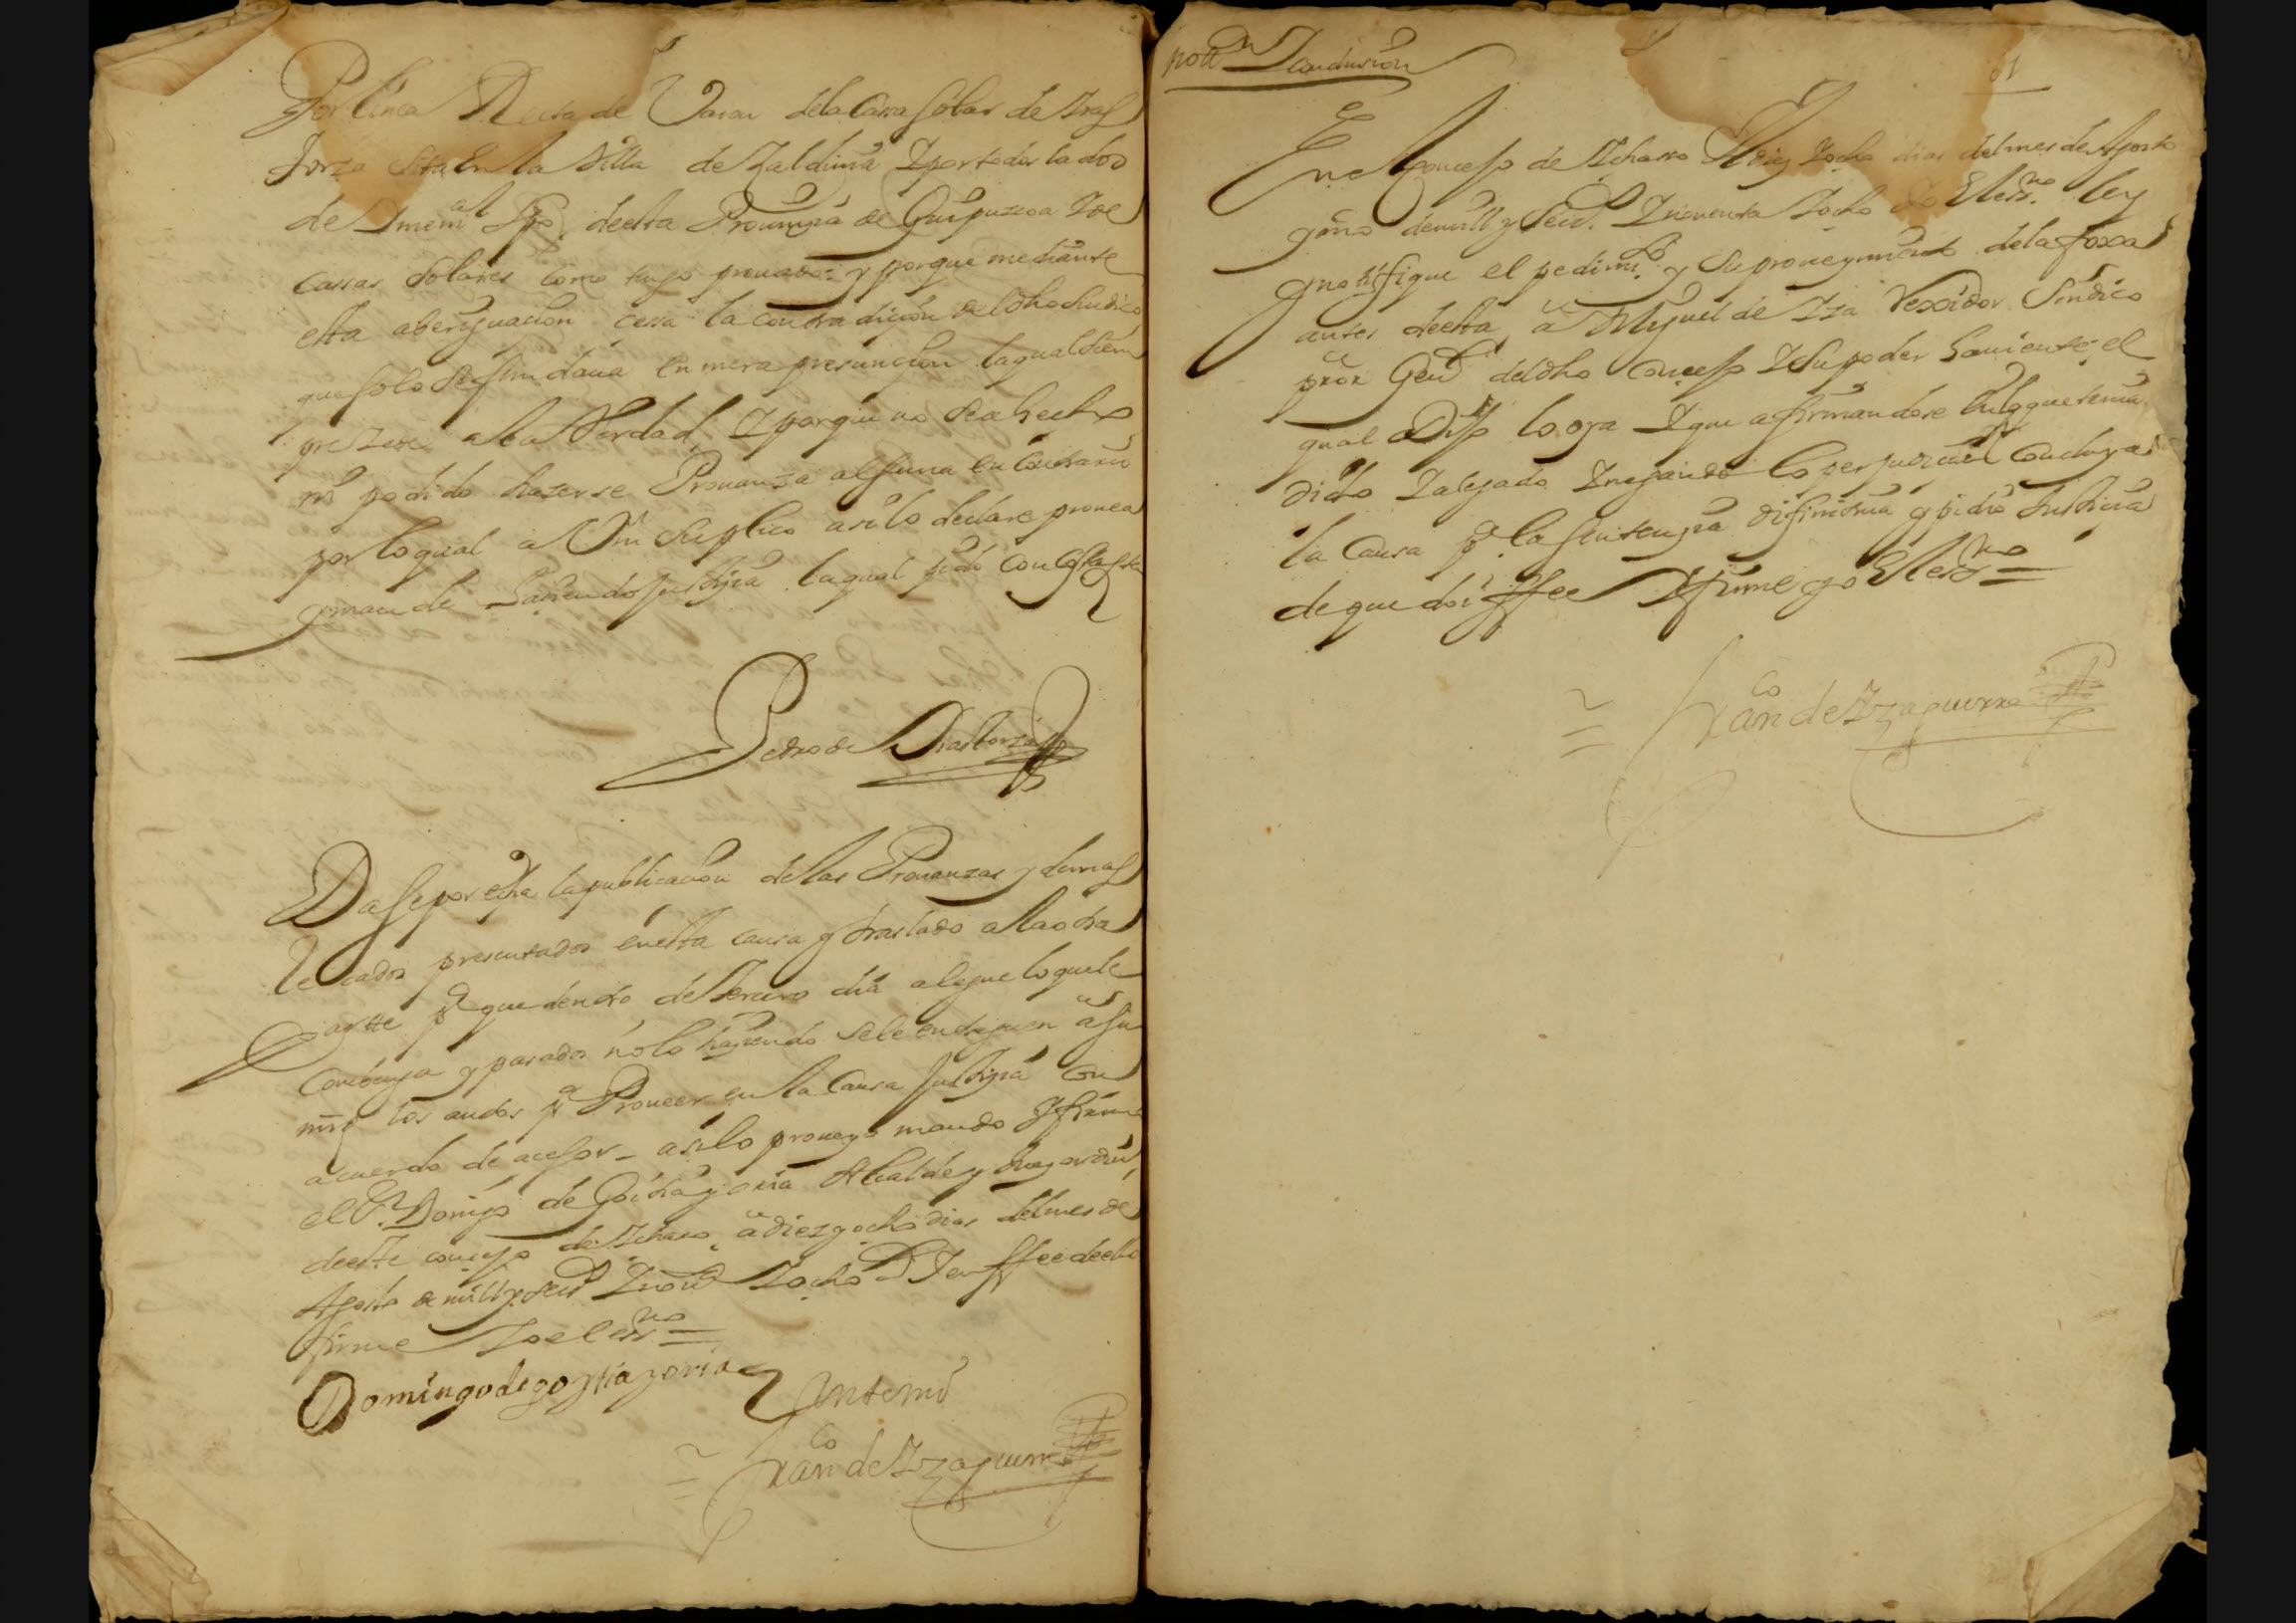 Por linea Recta de Varon dela Casa solar de Yras
torza sita en la Villa de Zaldiuia Y por todos lados
de Ynmemal tpo. deesta Prouinçia de Guipuzcoa Y de
cassas solares como tengo prouado: y porque mediante
esta aberiguaçion cesa la contradiçion del dho sindico
que solo se fundaua en mera presunçion la qual siem
pre zede a la Verdad, Y porque no se a hecho
ni podido hazerse Prouanza alguna en contrario
por lo qual a Vm suplico asi lo declare prouea
y mande haçiendo justiçia la qual pido con costas
Pedro de Yrastorza
Dase por echa la publicaçion de las Prouanzas y demas
Recados presentados en esta causa y traslado a la otra
parte pa que dentro de terzero dia alegue lo que le
conbenga y pasados no lo haçiendo se le entreguen a su
mrd los autos pa Proueer en la Causa justiçia con
acuerdo de acesor - asi lo proueyo mando Y firmo
el Sr Domingo de Goitia y oria Alcalde y Juez ordino
deeste conçejo de Ychaso a diez y ocho dias del mes de
Agosto de mill y seisos Y nouta Y ocho Y en ffee de ello
firme Yo el essno =
Domingo de goytia y oria
Ante mi
Franco de Yzaguirre
notton Y conclusion
61
En el Conçejo de Ychasso A diez Y ocho dias del mes de Agosto
año de mill y seisos. Y nouenta Y ocho Yo el essno. ley
y notifique el pedimto. y su proueymiento de la foxa
antes deesta a Miguel de Yza Rexidor Sindico
pror Genl del dho Conçejo Y su poder hauiente el
qual Dijo lo oya Y que afirmandose en lo que tenia
dicho Y alegado Y negando lo perjudiçial concluya
la Causa pa la sentençia difinitiua y pidio Justiçia
de que doi ffee Y firme yo el essno =
Franco de Yzaguirre